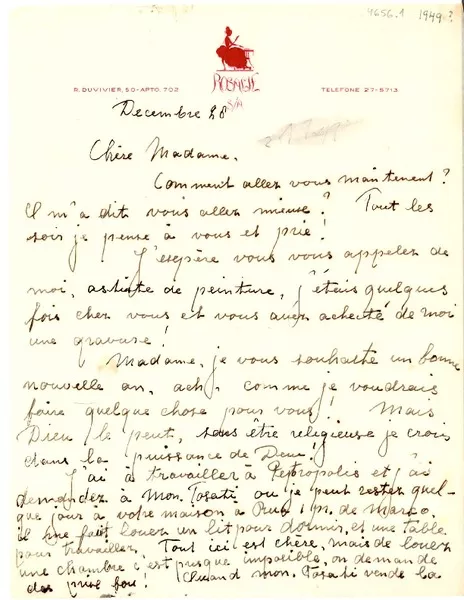 4656.1 1949?
ROSALIE
S/A
R. DUVIVIER, 50-APTO. 702 TELEFONE 27-5713
Decembre 28
Chère Madame.
Comment allez vous maintenent?
Il m'a dit vous allez mieuse? Tout les
soir je pense à vous et prie!
J'esepère vous vous appelez de
moi, astiste de peinture, j'étais quelques
fois chez vous et vous avez acheté de moi
une gravuse!
Madame, je vous souhaite un bonne
nouvelle an, ach, comme je voudrais
faire quelque chose pour vous! Mais
Dieu le peut, sans être religieuse je crois
dans la puissance de Deus!
J'ai à travailler à Petropolis et j'ai
demandez à Mon. Tosati ou je peut rester quel-
que jour à votre maison à Rua 1 m. de Março.
Il me faut louer un lit pour dormir, et une table
pour travailler. Tout ici est chère, mais de louer
une chambre c'est presque imposible, on demande
des prise fou! Quand mon. Tosati vende la